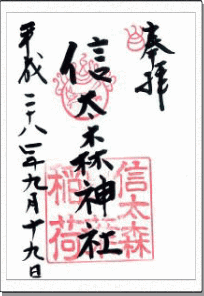 奉拝
信太森神社
信太森
稲荷
平成二十八年九月十九日